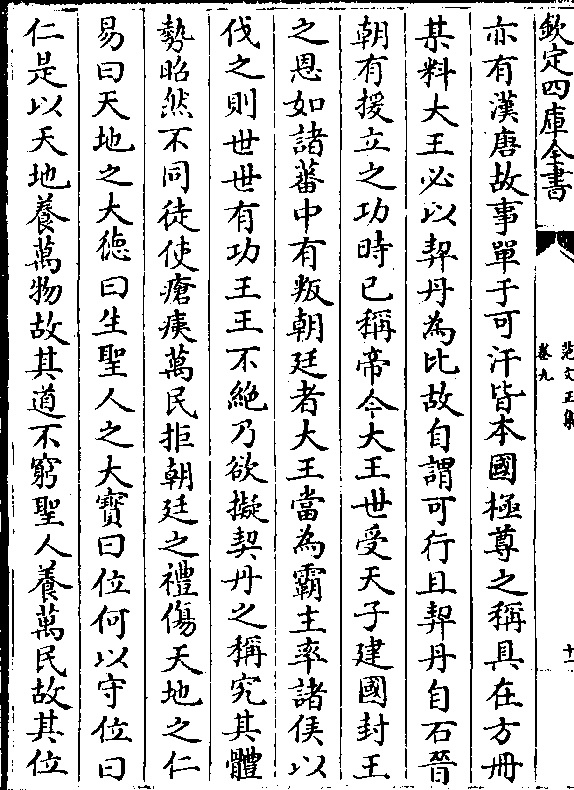 欽定四庫全書
范文正集
卷九
十一
亦有漢唐故事單于可汗皆本國極尊之稱具在方冊
某料大王必以契丹為比故自謂可行且契丹自石晉
朝有援立之功時已稱帝今大王世受天子建國封王
之恩如諸蕃中有叛朝廷者大王當為霸主率諸侯以
伐之則世世有功王王不絶乃欲擬契丹之稱究其體
勢昭然不同徒使瘡痍萬民拒朝廷之禮傷天地之仁
易曰天地之大徳曰生聖人之大寳曰位何以守位曰
仁是以天地養萬物故其道不窮聖人養萬民故其位